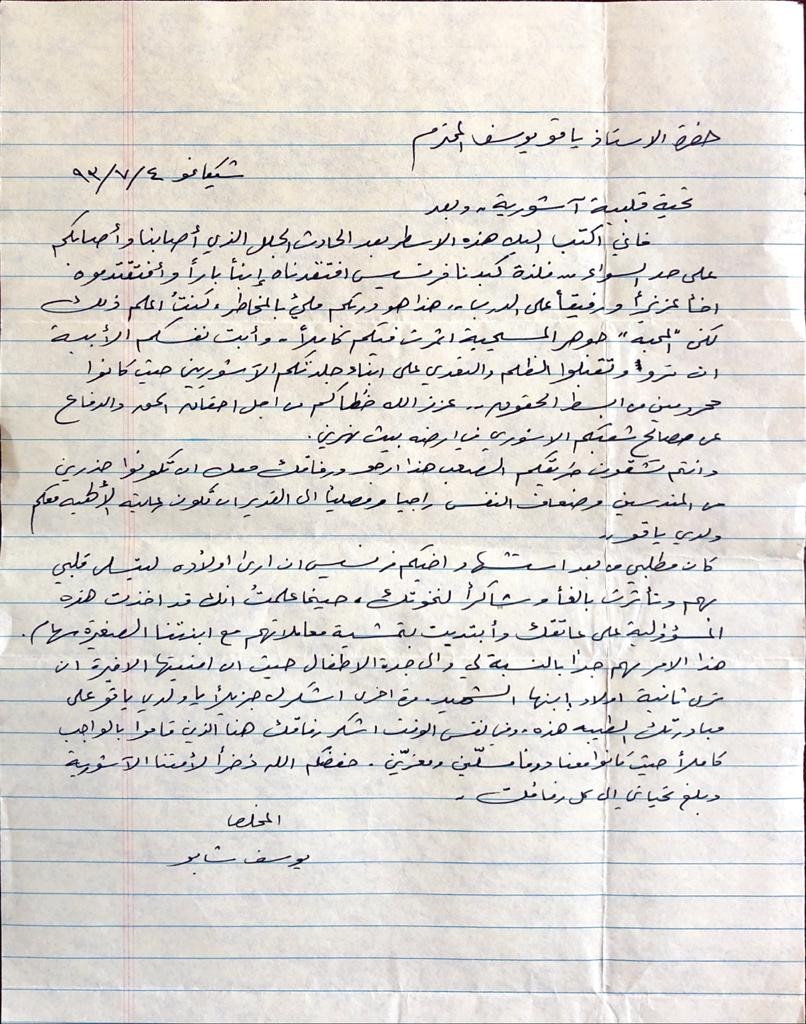 حضرة الاستاذ ياقو يوسف المحترم
شيكاغو ٩٣/٧/٤
تحية قلبية آشورية.. وبعد
فاني اكتب اليك هذه الاسطر بعد الحادث الجلل الذي أصابنا وأصابكم
على حد السواء .. فلذة كبدنا فرنسيس افتقدناه إبناً باراً وأفتقدتموه
اخاً عزيزاً ورفيقاً على الدرب.. هذا هو دربكم مليئ بالمخاطر، كنتُ اعلم ذلك
لكن "المحبة" جوهر المسيحية اثمرت فيكم كاملاً.. وأبت نفسكم الأبية
ان تروا وتقبلوا الظلم والتعدي على ابناء جلدتكم الآشوريين حيث كانوا
محرومين من ابسط الحقوق... عزز الله خُطاكم من اجل احقاق الحق والدفاع
عن مصالح شعبكم الاشوري في ارضه بيث نهرين.
وانتم تشقون طريقكم الصعب هذا ارجو ورفاقك معك ان تكونوا حذرين
من المندسين وضعاف النفس راجيا ومصلياً الى القدير ان تكون عنايته الألهيه معكم
ولدي ياقو..
كان مطلبي من بعد استشهاد اخيكم فرنسيس ان ارى اولاده ليتسلى قلبي
بهم وتأثرت بالغاً وشاكراً لنخوتك، حينما علمتُ انك قد اخذت هذه
المسؤولية على عاتقك وأبتديت بتمشية معاملاتهم مع ابنتنا الصغيرة سهام.
هذا الامر مهم جداً بالنسبة لي والى جدة الاطفال حيث ان امنيتها الاخيرة ان
ترى ثانية اولاد إبنها الشهيد. مرة اخرى اشكرك جزيلاً يا ولدي ياقو على
مبادرتك الطيبه هذه، وفي نفس الوقت اشكر رفاقك هنا الذين قاموا بالواجب
كاملاً حيث كانوا معنا دوما مسلّين ومعزّين. حفظكم الله ذخراً لأمتنا الآشورية
وبلغ تحياتي الى كل رفاقك..
المخلص
يوسف شابو